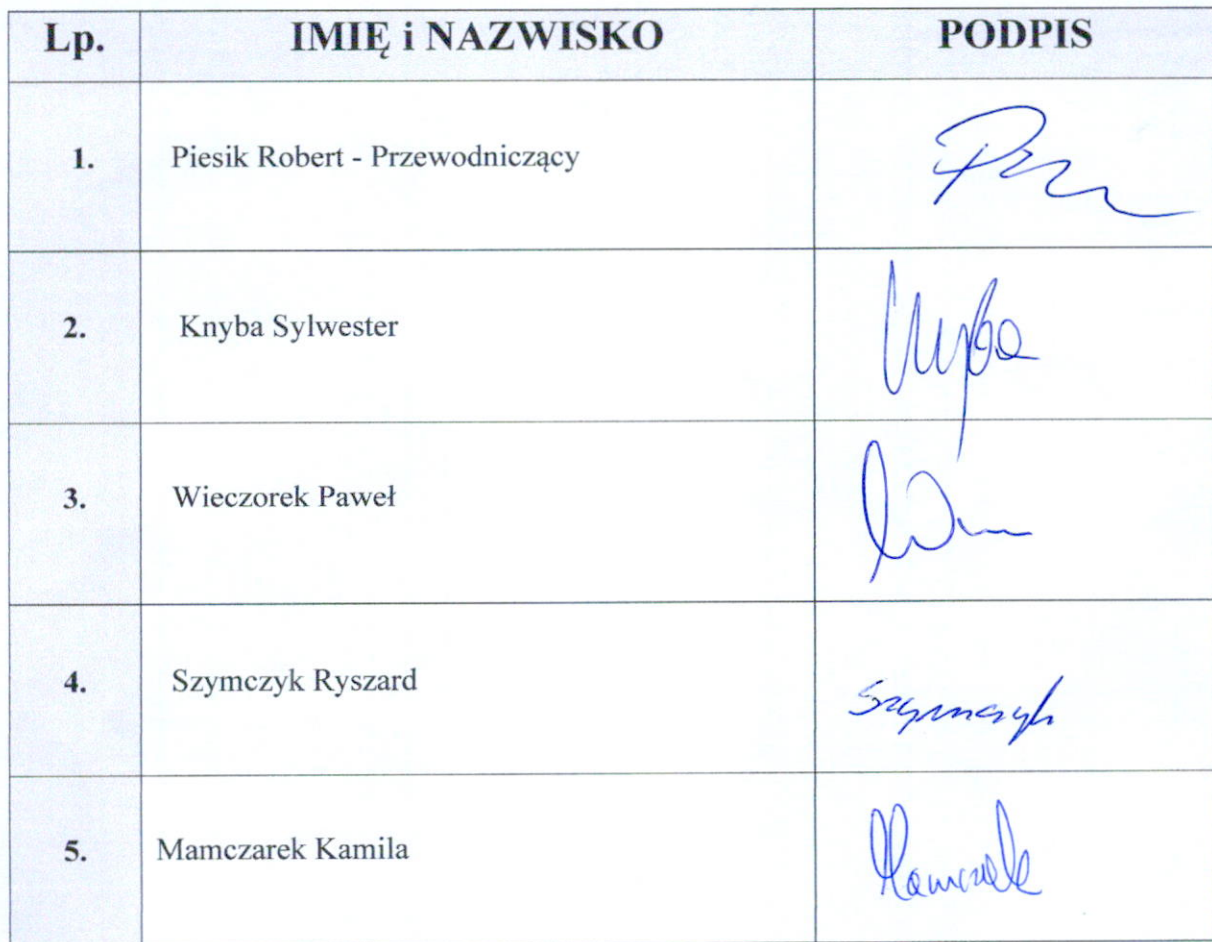 Lp. IMIĘ i NAZWISKO PODPIS
1. Piesik Robert - Przewodniczący
2. Knyba Sylwester Knyba
3. Wieczorek Paweł
4. Szymczyk Ryszard Szymczyk
5. Mamczarek Kamila Mamczarek